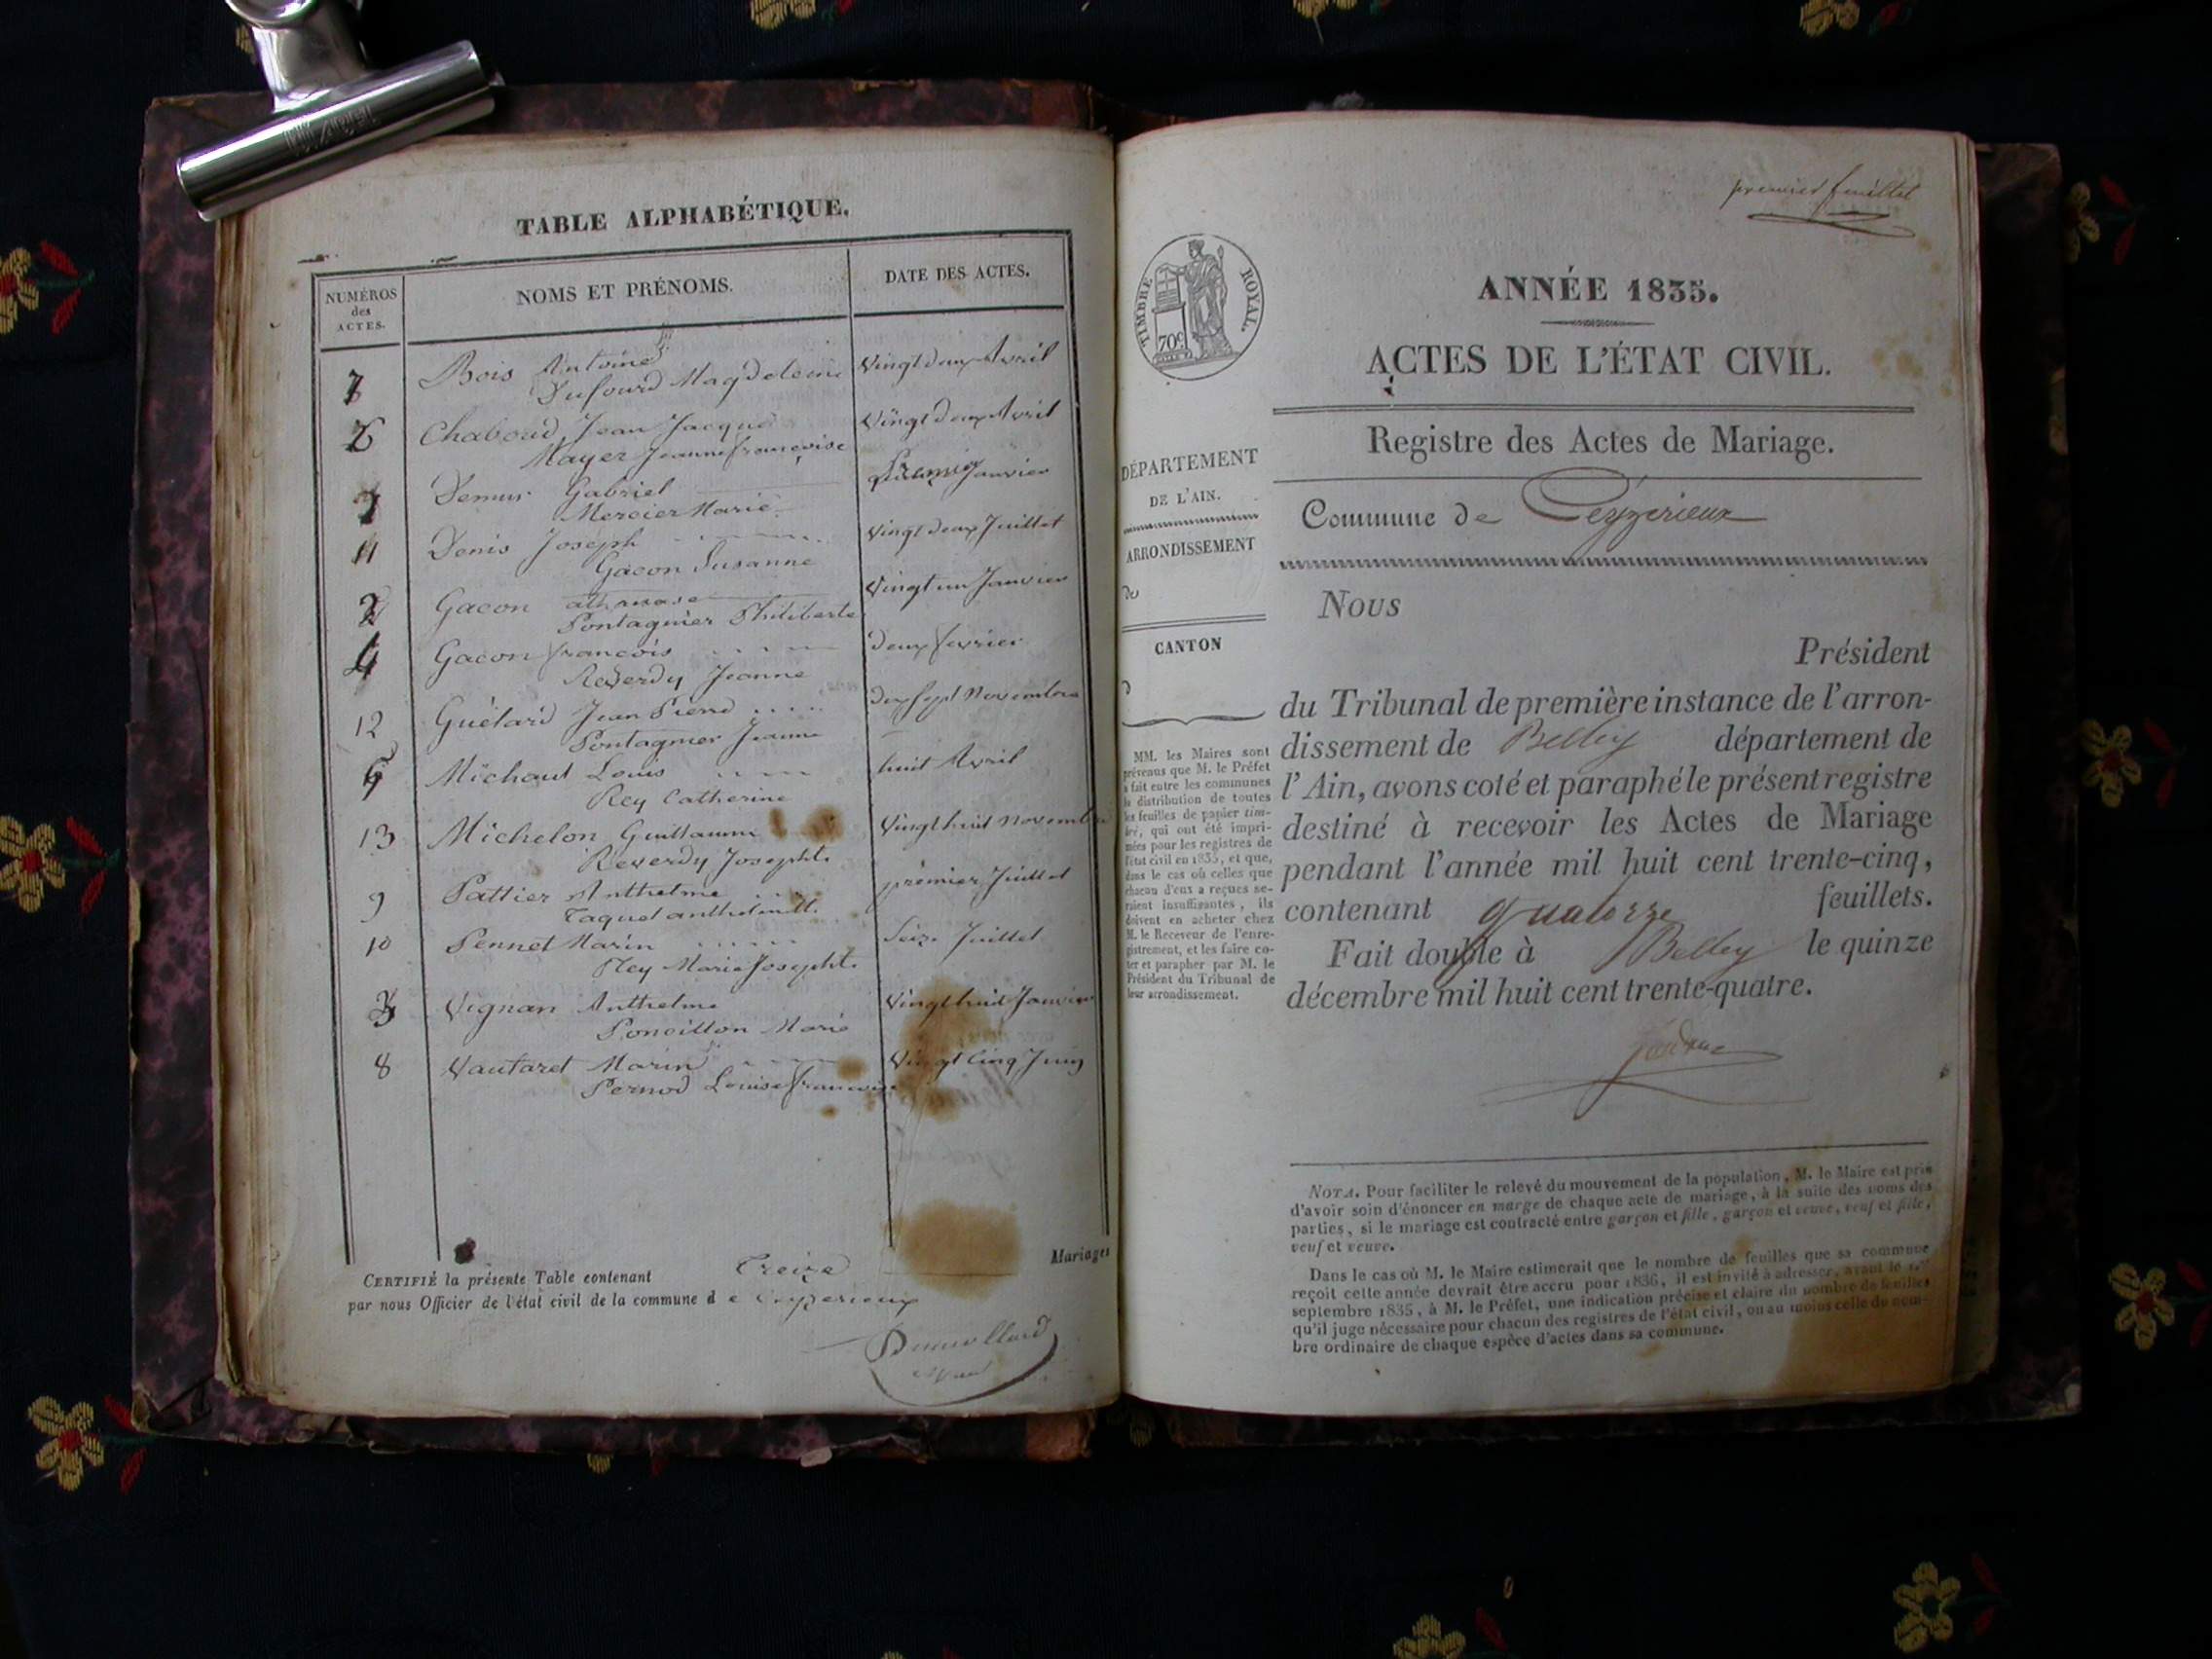 TABLE ALPHABÉTIQUE.
NUMÉROS
des
ACTES.
NOMS ET PRÉNOMS.
DATE DES ACTES.
7 Bois Antoine Vingt deux Avril
Dufourd Magdeleine
6 Chaboud Jean Jacque Vingt deux Avril
Mayer Jeanne françoise
1 Demur Gabriel Janvier
Mercier Marie
11 Denis Joseph Vingt deux Juillet
Gacon Susanne
2 Gacon athanase Vingt un Janvier
Pontagnier Philiberte
4 Gacon françois deux fevrier
Reverdy Jeanne
12 Guélard Jean Pierre dix sept Novembre
Pontagnier Jeanne
5 Michaud Louis huit Avril
Rey Catherine
13 Michelon Guillaume Vingt huit Novembre
Reverdy Josephte
9 Pattier Anthelme premier Juillet
Taquet anthelmette
10 Pennet Marin Seize Juillet
Rey Marie Josephte
3 Vignan Anthelme Vingt huit Janvier
Poncillon Marie
8 Vautaret Marin Vingt Cinq Juin
Pernod Louise françoise
CERTIFIÉ la présente Table contenant Treize Mariages
par nous Officier de l'état civil de la commune de Ceyzerieux
premier feuillet
TIMBRE ROYAL.
70c
ANNÉE 1835.
ACTES DE L'ÉTAT CIVIL.
Registre des Actes de Mariage.
Commune de Ceyzerieux
DÉPARTEMENT
DE L'AIN.
ARRONDISSEMENT
de
CANTON
d
MM. les Maires sont
prévenus que M. le Préfet
a fait entre les communes
la distribution de toutes
les feuilles de papier tim-
bré, qui ont été impri-
mées pour les registres de
l'état civil en 1835, et que,
dans le cas où celles que
chacun d'eux a reçues se-
raient insuffisantes, ils
doivent en acheter chez
M. le Receveur de l'enre-
gistrement, et les faire co-
ter et parapher par M. le
Président du Tribunal de
leur arrondissement.
Nous
Président
du Tribunal de première instance de l'arron-
dissement de Belley département de
l'Ain, avons coté et paraphé le présent registre
destiné à recevoir les Actes de Mariage
pendant l'année mil huit cent trente-cinq,
contenant quatorze feuillets.
Fait double à Belley le quinze
décembre mil huit cent trente-quatre.
NOTA. Pour faciliter le relevé du mouvement de la population, M. le Maire est prié
d'avoir soin d'énoncer en marge de chaque acte de mariage, à la suite des noms des
parties, si le mariage est contracté entre garçon et fille, garçon et veuve, veuf et fille,
veuf et veuve.
Dans le cas où M. le Maire estimerait que le nombre de feuilles que sa commune
reçoit cette année devrait être accru pour 1836, il est invité à adresser, avant le 1.er
septembre 1835, à M. le Préfet, une indication précise et claire du nombre de feuilles
qu'il juge nécessaire pour chacun des registres de l'état civil, ou au moins celle du nom-
bre ordinaire de chaque espèce d'actes dans sa commune.